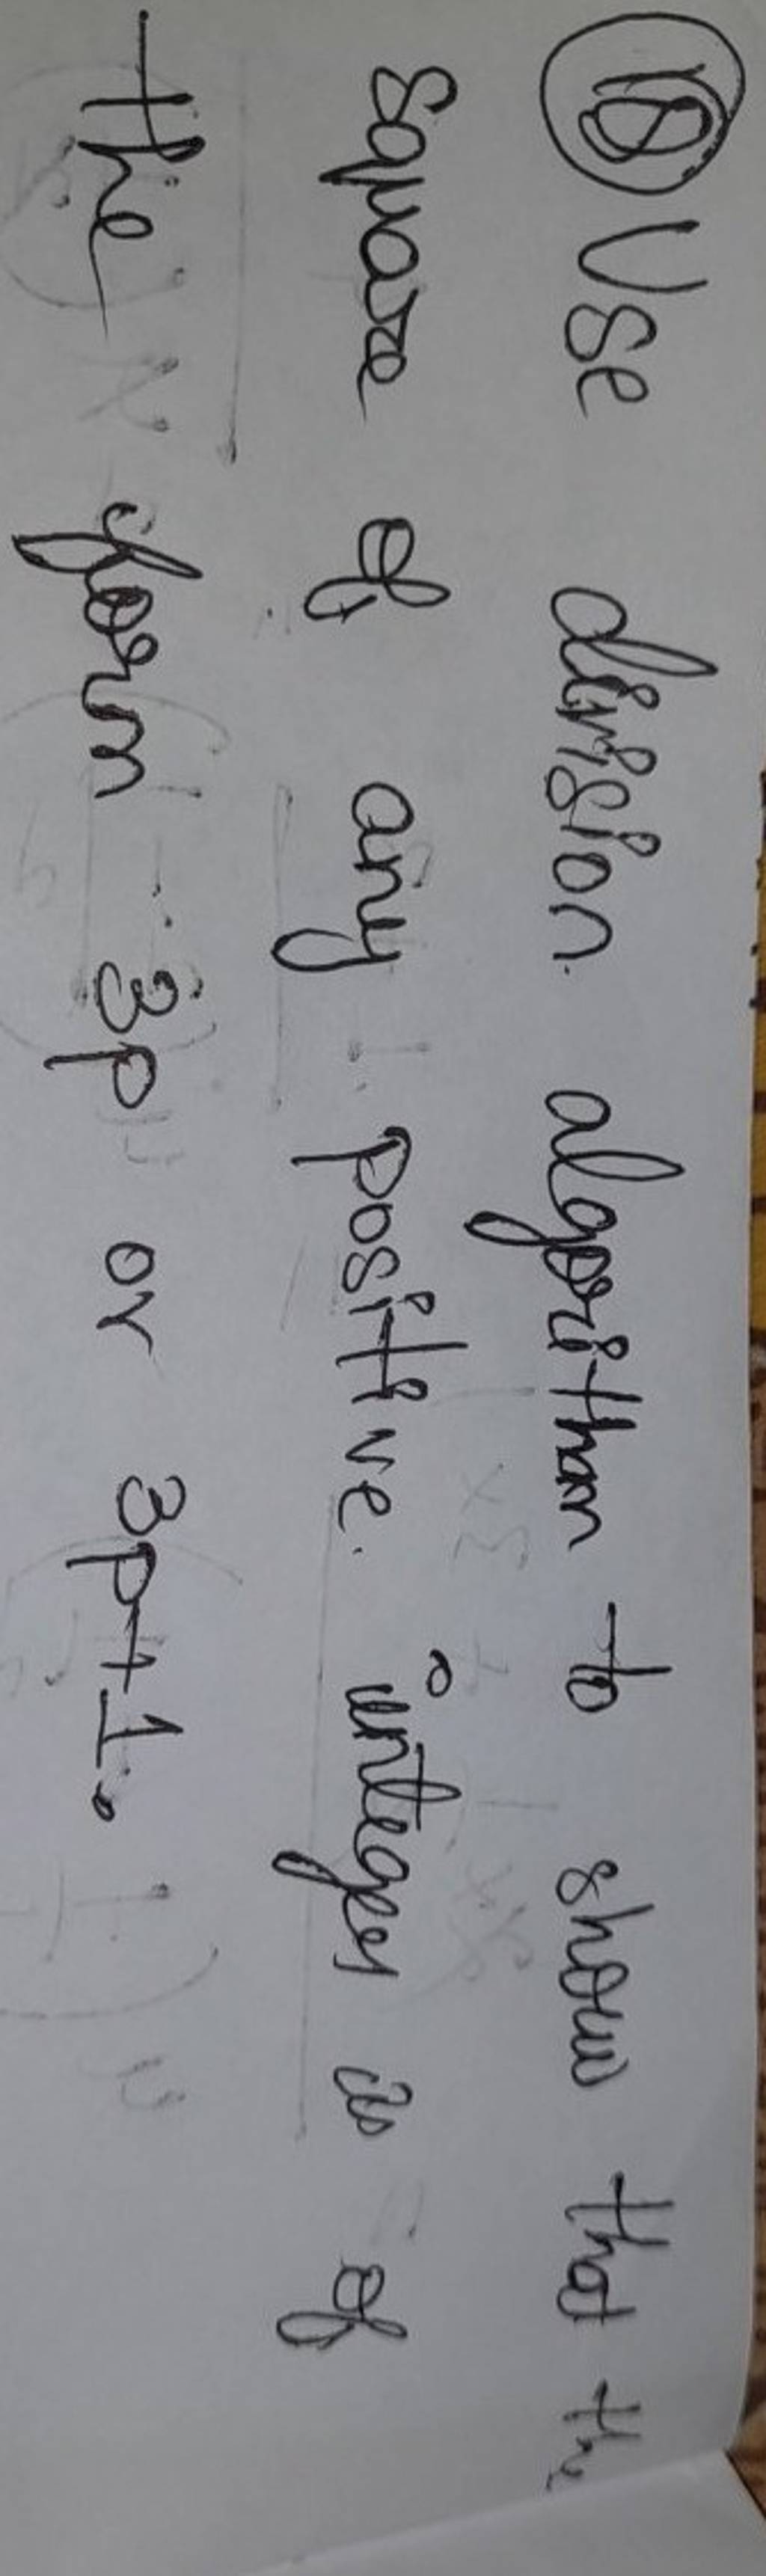 18 Use division algorithm to show that the
square of any positive integer is of
the form 3p or 3p+1.